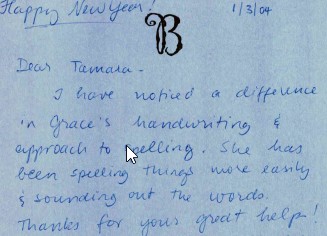 Happy New Year! 1/3/04
B
Dear Tamara -
I have noticed a difference
in Grace's handwriting &
approach to spelling. She has
been spelling things more easily
& sounding out the words.
Thanks for your great help!